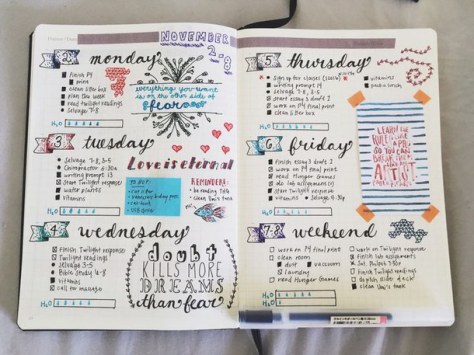 NOVEMBER
2-8
2
monday
finish P4
print
clean litter box
plan the week
read twilight readings
selvage 7-8
everything you want
is on the other side of
fear
H₂O
3
tuesday
Selvage 7-8, 3-5
Chiropractor 6:30
writing prompt 13
start Twilight response
water plants
vitamins
Love is eternal
TO BUY:
REMINDERS:
H₂O
4
wednesday
finish Twilight response
Twilight readings
selvage 3-5
Bible Study 6-8
vitamins
call for massage
doubt
KILLS MORE
DREAMS
than fear
H₂O
5
thursday
sign up for classes
vitamins
writing prompt 14
selvage 7-8, 3-5
start essay 3 draft 2
work on P4 final print
clean litter box
LEARN THE
RULES LIKE
A PRO,
SO YOU CAN
BREAK THEM
LIKE AN
ARTIST
H₂O
6
friday
finish essay 3 draft 2
work on P4 final print
read Hunger Games
start Twilight response
vitamins
selvage
H₂O
7-8
weekend
work on P4 final print
clean
dust
vacuum
laundry
read Hunger Games
work on Twilight response
finish lab assignments
finish Twilight readings
H₂O